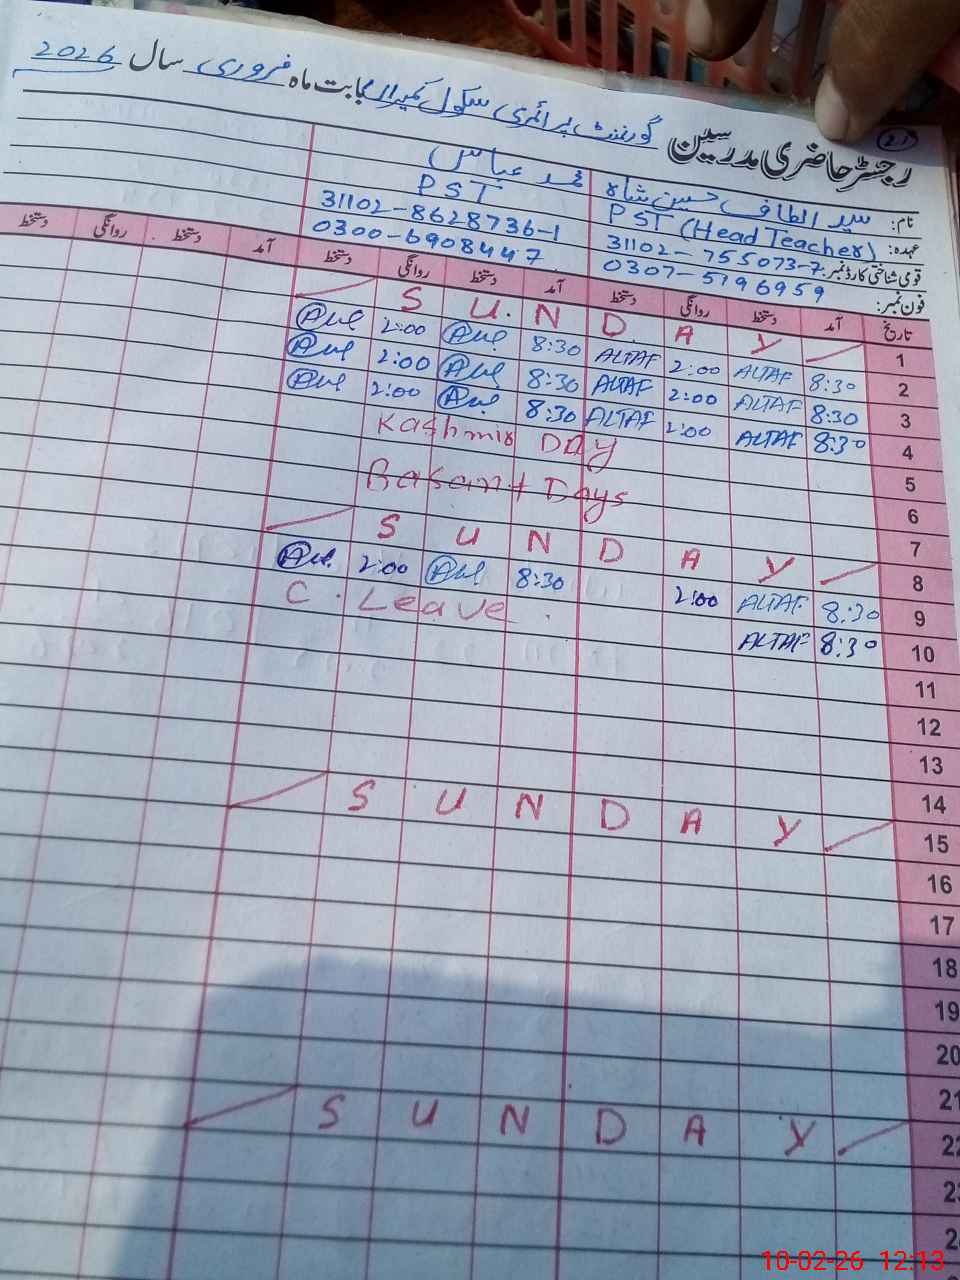 رجسٹر حاضری مدرسین گورنمنٹ پرائمری سکول بابت ماہ فروری سال 2026
21
نام: سید الطاف حسین شاہ محمد عباس
عہدہ: PST (Head Teacher) PST
قومی شناختی کارڈ نمبر: 31102-755073-7 31102-8628736-1
فون نمبر: 0307-5196959 0300-6908447
تاریخ آمد دستخط روانگی دستخط آمد دستخط روانگی دستخط آمد دستخط روانگی دستخط
1 S U N D A Y
2 8:30 ALTAF 2:00 ALTAF 8:30 2:00
3 8:30 ALTAF 2:00 ALTAF 8:30 2:00
4 8:30 ALTAF 2:00 ALTAF 8:30 2:00
5 Kashmir DAY
6 Basant Days
7
8 S U N D A Y
9 8:30 ALTAF 2:00 8:30 2:00
10 8:30 ALTAF C. Leave
11
12
13
14
15 S U N D A Y
16
17
18
19
20
21
22 S U N D A Y
23
10-02-26 12:13